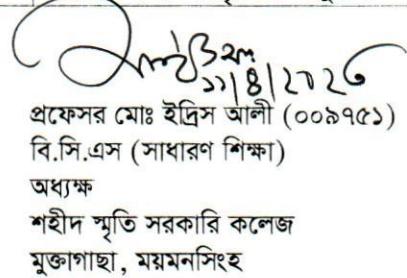 ১১/৪/২০২৬
প্রফেসর মোঃ ইদ্রিস আলী (০০৯৭৫১)
বি.সি.এস (সাধারণ শিক্ষা)
অধ্যক্ষ
শহীদ স্মৃতি সরকারি কলেজ
মুক্তাগাছা, ময়মনসিংহ